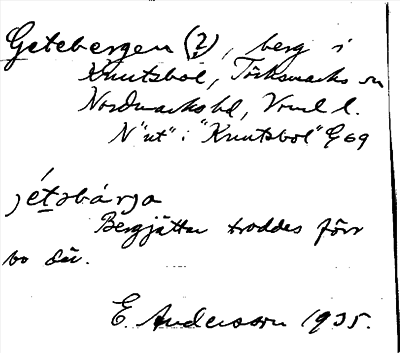 Getebergen (?), berg i
Knutsbol, Töcksmarks sn
Nordmarks hd, Vrml l.
N "ut" i "Knutsbol" G69
jétəbárja
Bergjättar troddes förr
bo där.
E. Andersson 1935.